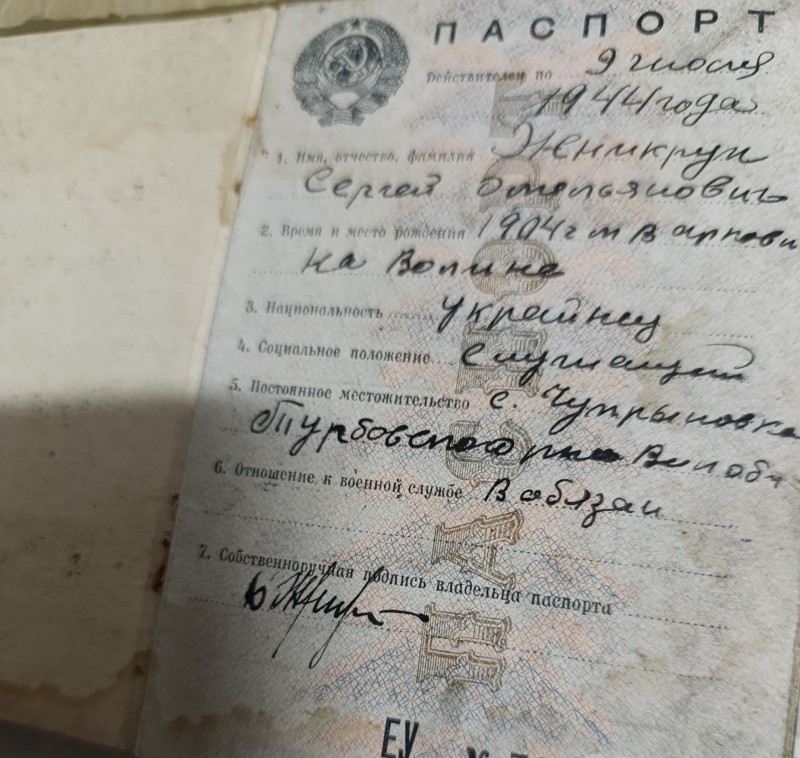 ПАСПОРТ
Действителен по 9 июля
1944 года
1. Имя, отчество, фамилия
Сергей Омельянович
2. Время и место рождения 1904 г м
на Волине
3. Национальность украинец
4. Социальное положение служащий
5. Постоянное местожительство с. Чупрыновка
Турбовского рна Вин обл
6. Отношение к военной службе В обязан
7. Собственноручная подпись владельца паспорта
ЕУ